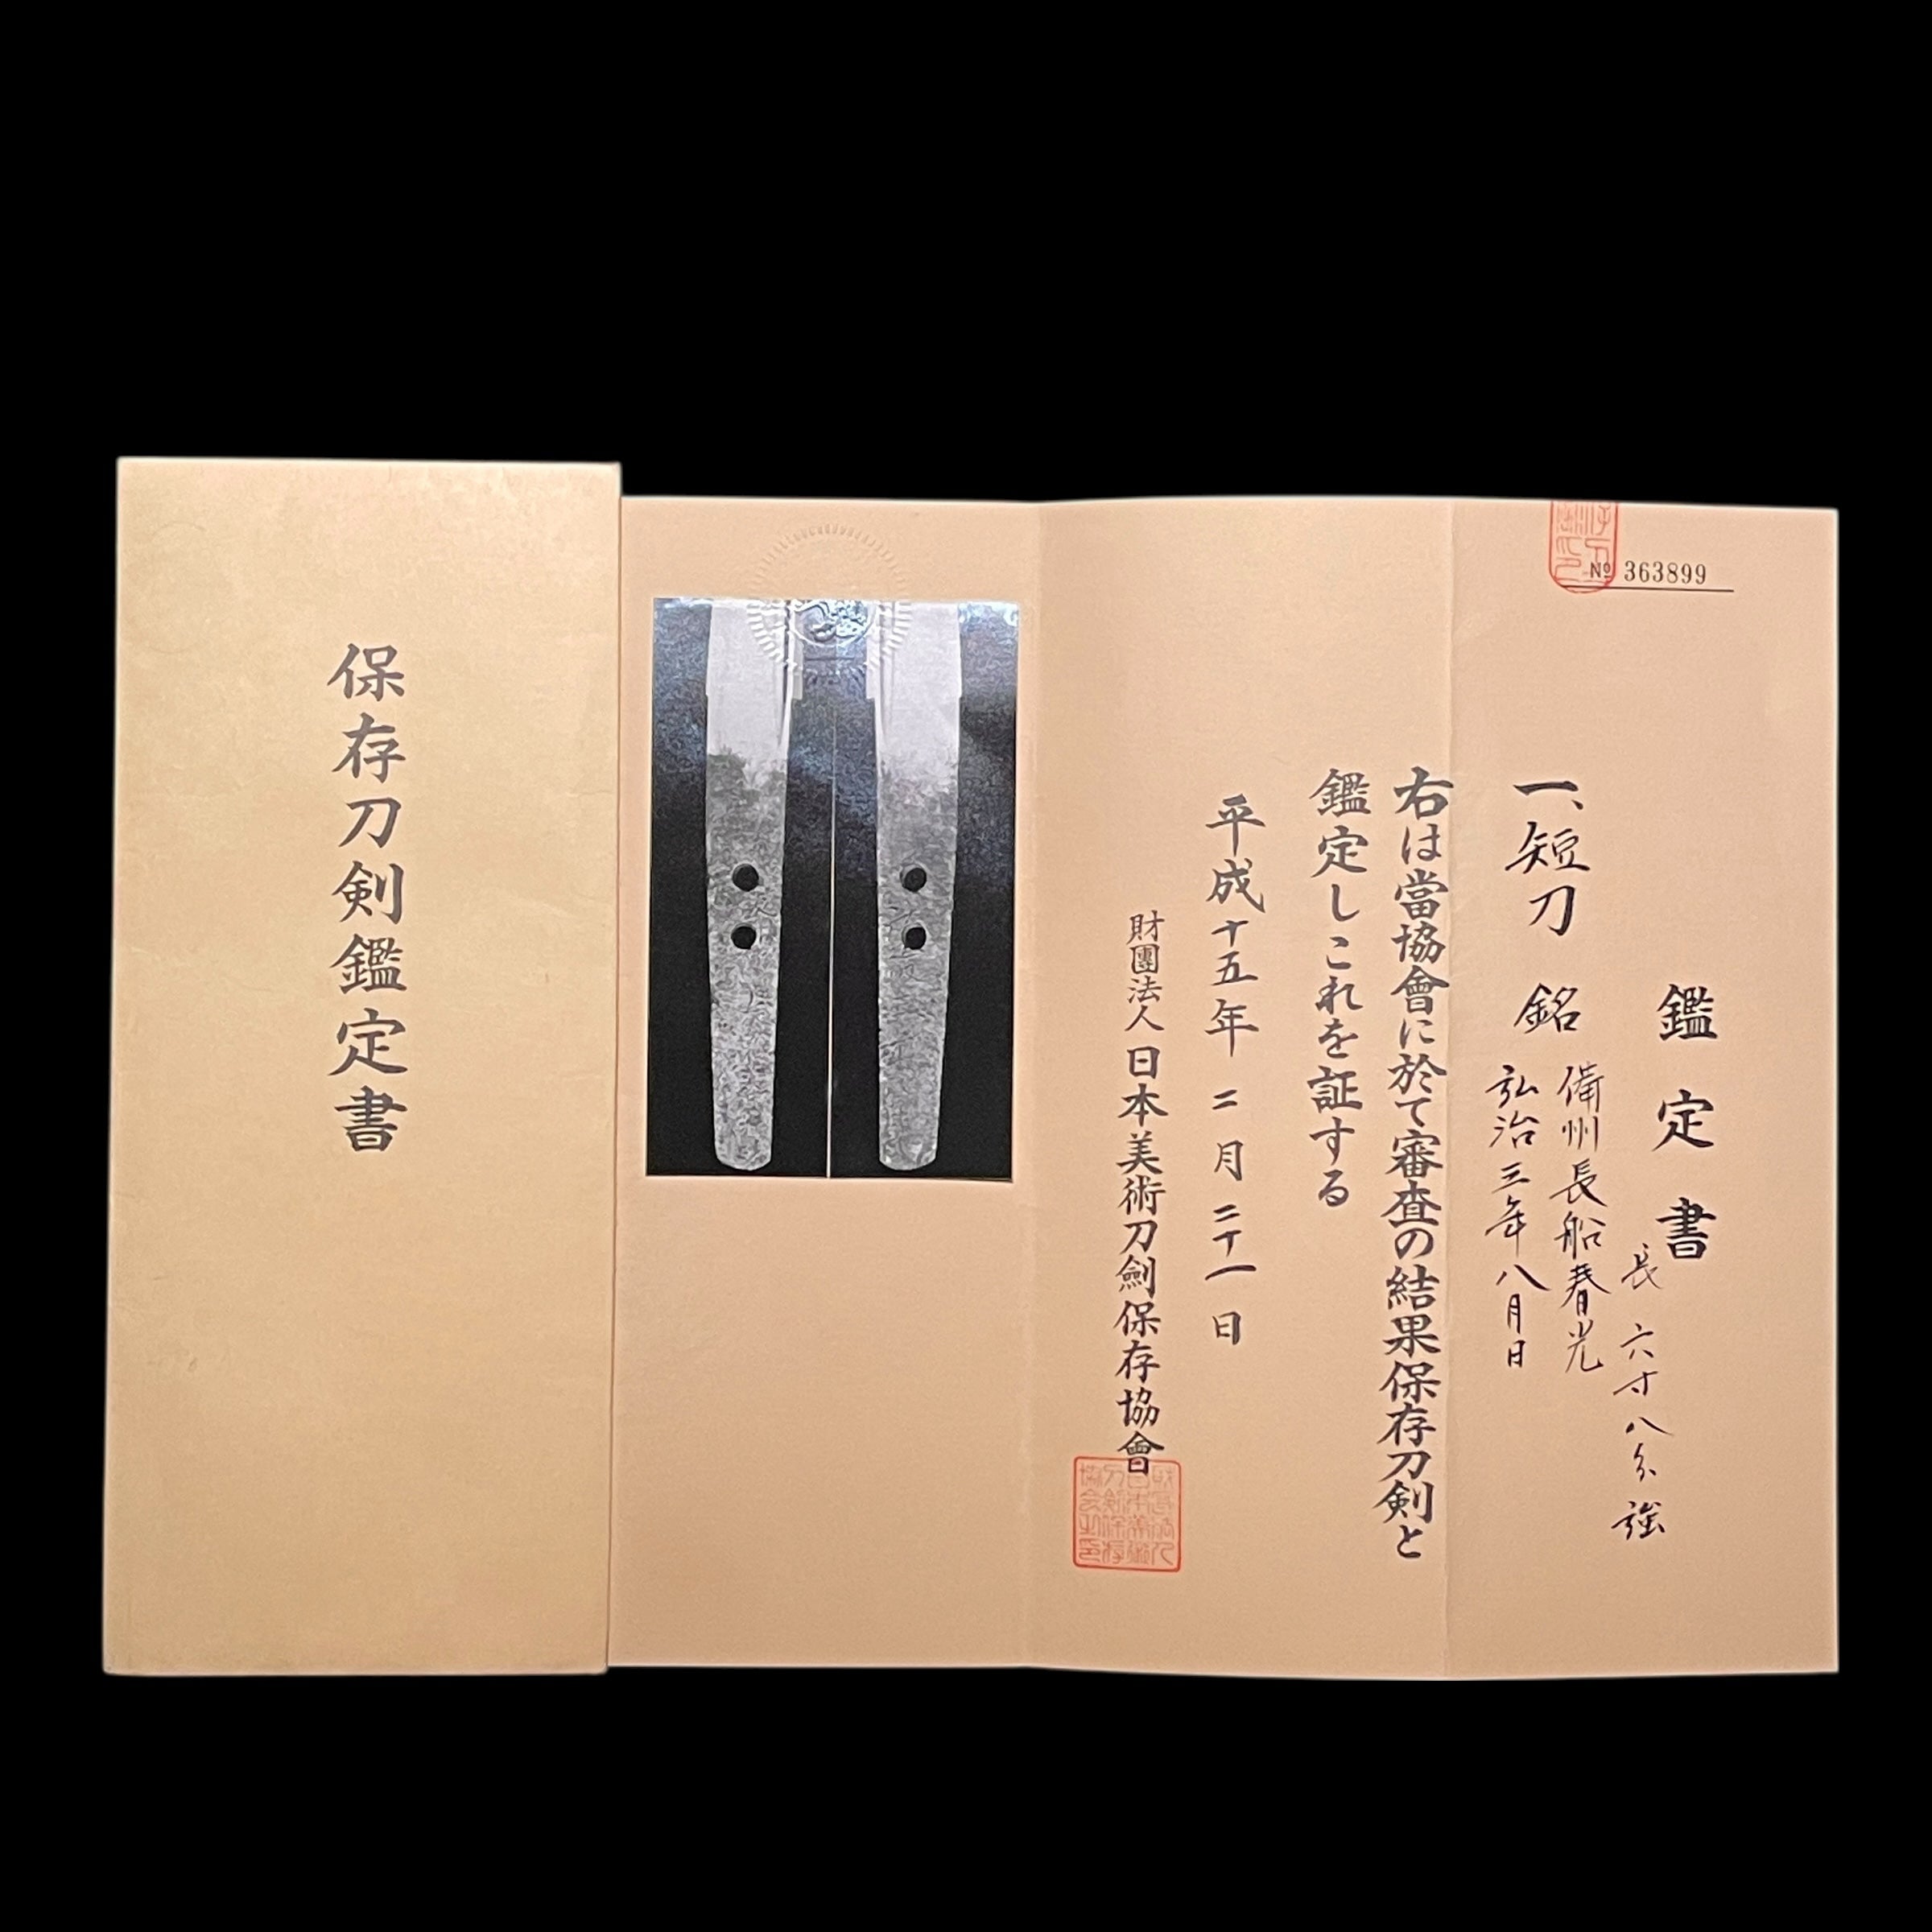 保存刀剣鑑定書
№ 363899
鑑定書
長 六寸八分強
一、短刀 銘
備州長船春光
弘治三年八月日
右は當協會に於て審査の結果保存刀剣と
鑑定しこれを証する
平成十五年 二月 二十一日
財團法人 日本美術刀劍保存協會